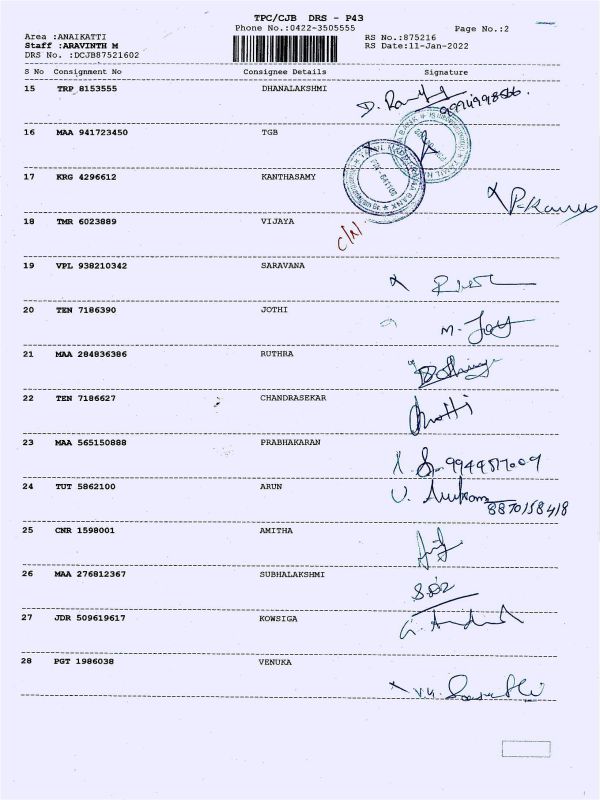 TPC/CJB DRS - P43
Phone No.:0422-3505555
Page No.:2
Area :ANAIKATTI
RS No.:875216
Staff :ARAVINTH M
RS Date:11-Jan-2022
DRS No. :DCJB87521602
S No Consignment No Consignee Details Signature
15 TRP 8153555 DHANALAKSHMI
16 MAA 941723450 TGB
17 KRG 4296612 KANTHASAMY
18 TMR 6023889 VIJAYA
C/N
19 VPL 938210342 SARAVANA
20 TEN 7186390 JOTHI
21 MAA 284836386 RUTHRA
22 TEN 7186627 CHANDRASEKAR
23 MAA 565150888 PRABHAKARAN
24 TUT 5862100 ARUN
8870158418
25 CNR 1598001 AMITHA
26 MAA 276812367 SUBHALAKSHMI
27 JDR 509619617 KOWSIGA
28 PGT 1986038 VENUKA